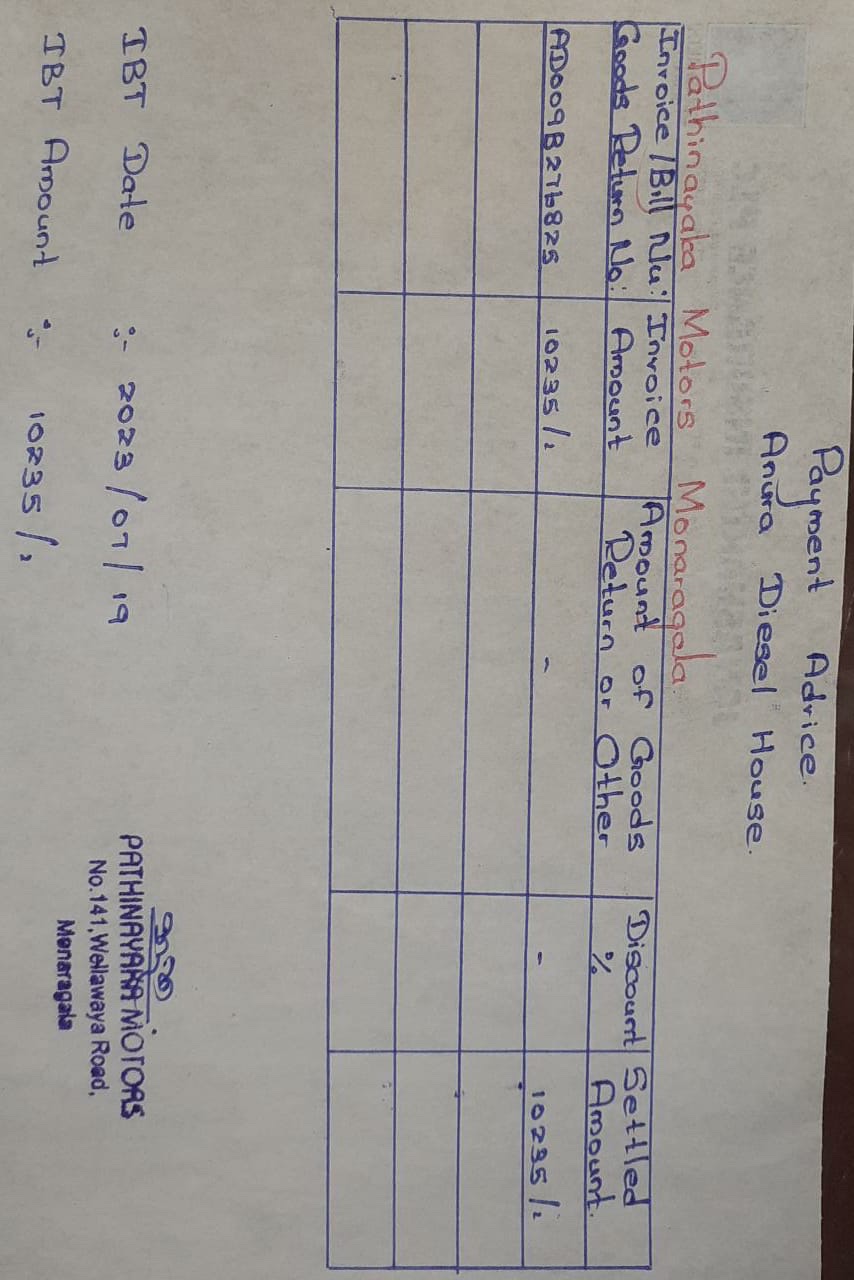 Payment Advice.
Anura Diesel House.
Pathinayaka Motors Monaragala.
Invoice/Bill Nu: Invoice Amount of Goods Discount Settled
Goods Return No: Amount Return or Other % Amount.
AD009B276825 10235/. - - 10235/.
IBT Date :- 2023/07/19
IBT Amount :- 10235/.
PATHINAYAKA MOTORS
No.141, Wellawaya Road,
Monaragala